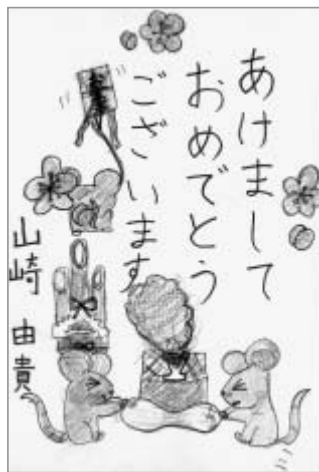 あけまして
おめでとう
ございます
山崎 由貴